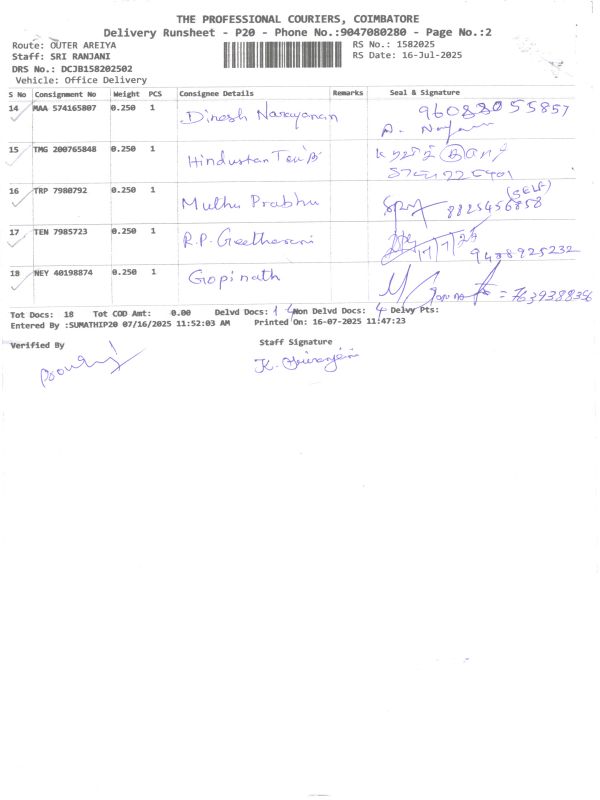 THE PROFESSIONAL COURIERS, COIMBATORE
Delivery Runsheet - P20 - Phone No.:9047080280 - Page No.:2
Route: OUTER AREIYA
RS No.: 1582025
Staff: SRI RANJANI
RS Date: 16-Jul-2025
DRS No.: DCJB158202502
Vehicle: Office Delivery
S No Consignment No Weight PCS Consignee Details Remarks Seal & Signature
14 MAA 574165807 0.250 1 Dinesh Narayanan
15 TMG 200765848 0.250 1 Hindustan
16 TRP 7980792 0.250 1 Muthu Prabhu (SELF) 8825456858
17 TEN 7985723 0.250 1 R.P. Geetharani 17/7/25 9488925232
18 NEY 40198874 0.250 1 Gopinath
Tot Docs: 18 Tot COD Amt: 0.00 Delvd Docs: 14 Non Delvd Docs: 4 Delvy Pts:
Entered By :SUMATHIP20 07/16/2025 11:52:03 AM Printed On: 16-07-2025 11:47:23
Verified By
Staff Signature